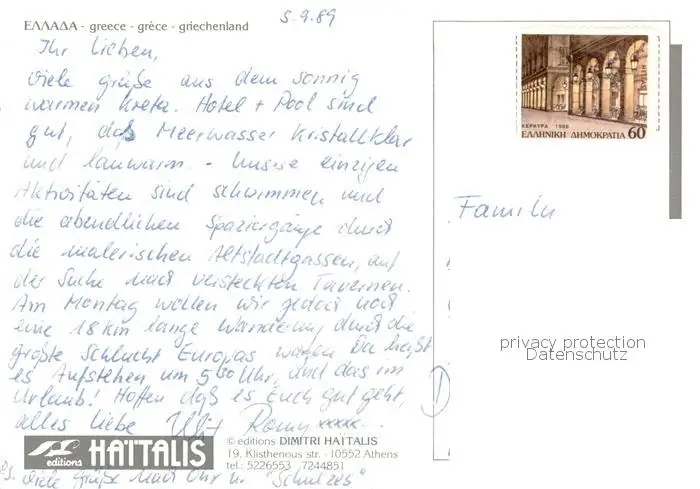 5.9.89
ΕΛΛΑΔΑ - greece - grèce - griechenland
Ihr Lieben,
viele grüße aus dem sonnig
warmen Kreta. Hotel + Pool sind
gut, das Meerwasser kristallklar
und lauwarm. - Unsere einzigen
Aktivitäten sind schwimmen und
die abendlichen Spaziergänge durch
die malerischen Altstadtgassen, auf
der Suche nach versteckten Tavernen.
Am Montag wollen wir jedoch noch
eine 18 km lange Wanderung durch die
größte Schlucht Europas wagen. Da heißt
es Aufstehen um 5 00 Uhr, und das im
Urlaub! Hoffen daß es Euch gut geht,
alles liebe Romy xxxx...
editions HAÏTALIS
© editions DIMITRI HAÏTALIS
19, Klisthenous str. - 10552 Athens
tel.: 5226553 7244851
viele Grüße nach u. "Schulzes"
ΚΕΡΚΥΡΑ 1988
ΕΛΛΗΝΙΚΗ ΔΗΜΟΚΡΑΤΙΑ 60
Familie
privacy protection
Datenschutz